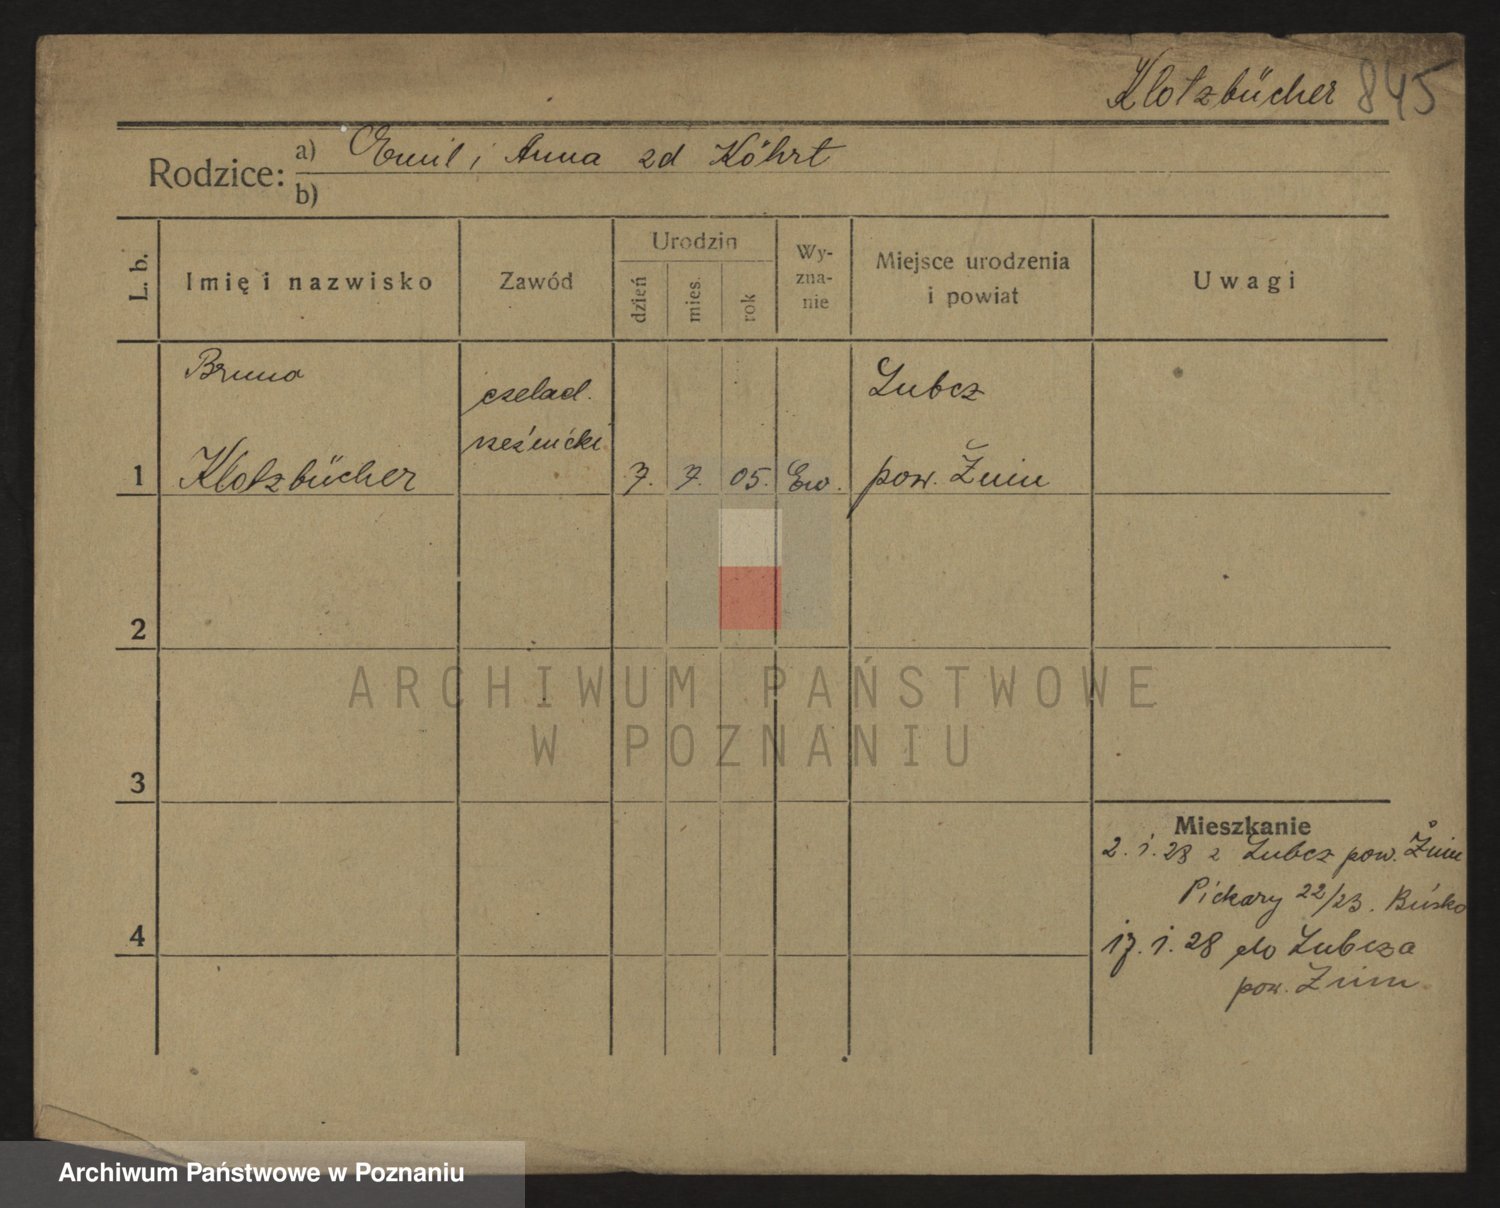 Klotzbücher 845
Rodzice: a) Emil i Anna zd Köhrt
b)
L. b.
Imię i nazwisko
Zawód
Urodzin
dzień
mies.
rok
Wy-
zna-
nie
Miejsce urodzenia
i powiat
Uwagi
1
Bruno
Klotzbücher
czelad.
rzeźnicki
7. 7. 05. Ew.
Lubcz
pow. Żnin
2
ARCHIWUM PAŃSTWOWE
W POZNANIU
3
Mieszkanie
2. 1. 28 z Lubcz pow. Żnin
Piekary 22/23.
4
17. 1. 28 do Lubcza
pow. Żnin
Archiwum Państwowe w Poznaniu